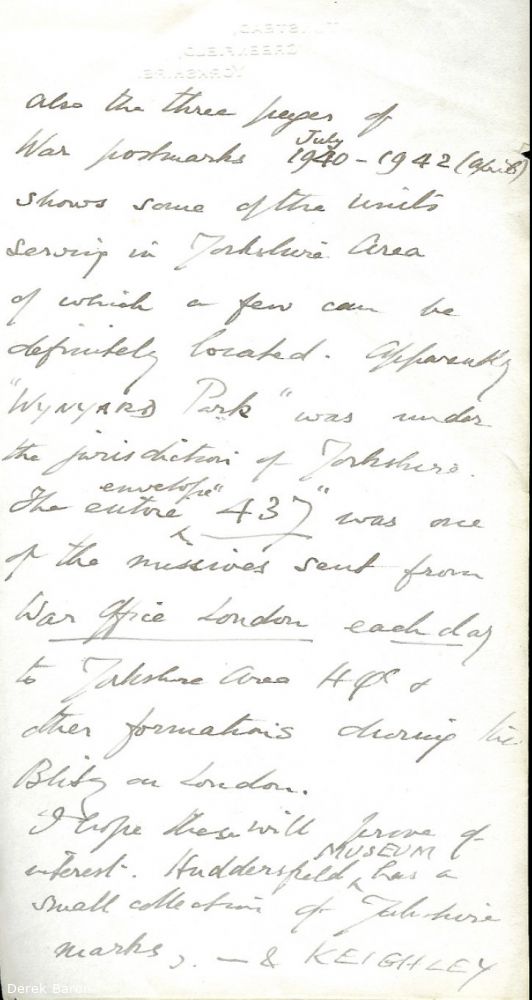 TUNSTEAD,
GREENFIELD,
YORKSHIRE.
also the three pages of
War postmarks July 1940 - 1942 (April)
shows some of the units
serving in Yorkshire Area
of which a few can be
definitely located. Apparently
"WYNYARD Park" was under
the jurisdiction of Yorkshire.
The entire envelope "437" was one
of the missives sent from
War Office London each day
to Yorkshire Area HQrs &
other formations during the
Blitz on London.
I hope these will prove of
interest. Huddersfield MUSEUM has a
small collection of Yorkshire
marks, - & KEIGHLEY
Derek Baron